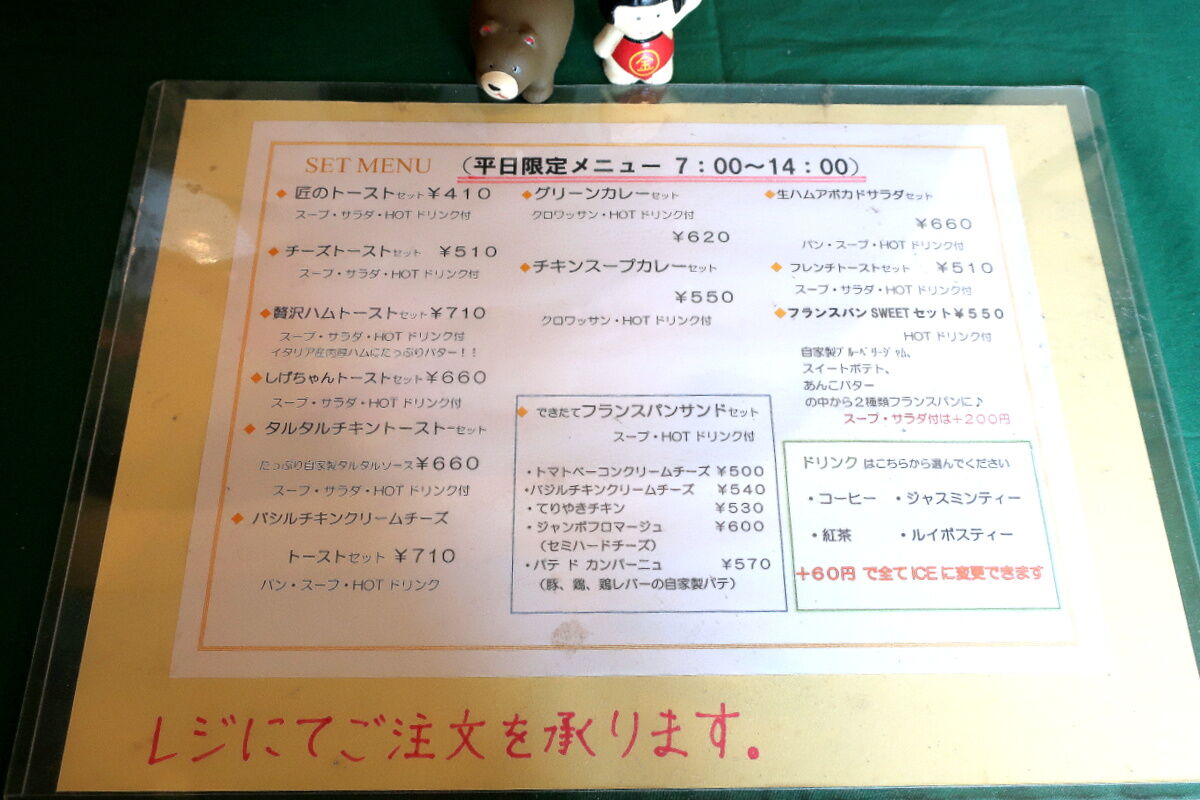 金
SET MENU (平日限定メニュー 7:00~14:00)
◆匠のトーストセット ¥410
スープ・サラダ・HOTドリンク付
◆チーズトーストセット ¥510
スープ・サラダ・HOTドリンク付
◆贅沢ハムトーストセット ¥710
スープ・サラダ・HOTドリンク付
イタリア産肉厚ハムにたっぷりバター!!
◆しげちゃんトーストセット ¥660
スープ・サラダ・HOTドリンク付
◆タルタルチキントーストーセット
たっぷり自家製タルタルソース ¥660
スープ・サラダ・HOTドリンク付
◆バジルチキンクリームチーズ
トーストセット ¥710
パン・スープ・HOTドリンク
◆グリーンカレーセット
クロワッサン・HOTドリンク付
¥620
◆チキンスープカレーセット
¥550
クロワッサン・HOTドリンク付
◆できたてフランスパンサンドセット
スープ・HOTドリンク付
・トマトベーコンクリームチーズ ¥500
・バジルチキンクリームチーズ ¥540
・てりやきチキン ¥530
・ジャンボフロマージュ ¥600
(セミハードチーズ)
・パテ ド カンパーニュ ¥570
(豚、鶏、鶏レバーの自家製パテ)
◆生ハムアボカドサラダセット
¥660
パン・スープ・HOTドリンク付
◆フレンチトーストセット ¥510
スープ・サラダ・HOTドリンク付
◆フランスパン SWEETセット ¥550
HOTドリンク付
自家製ブルーベリージャム、
スイートポテト、
あんこバター
の中から2種類フランスパンに♪
スープ・サラダ付は+200円
ドリンク はこちらから選んでください
・コーヒー ・ジャスミンティー
・紅茶 ・ルイボスティー
+60円 で全てICEに変更できます
レジにてご注文を承ります。